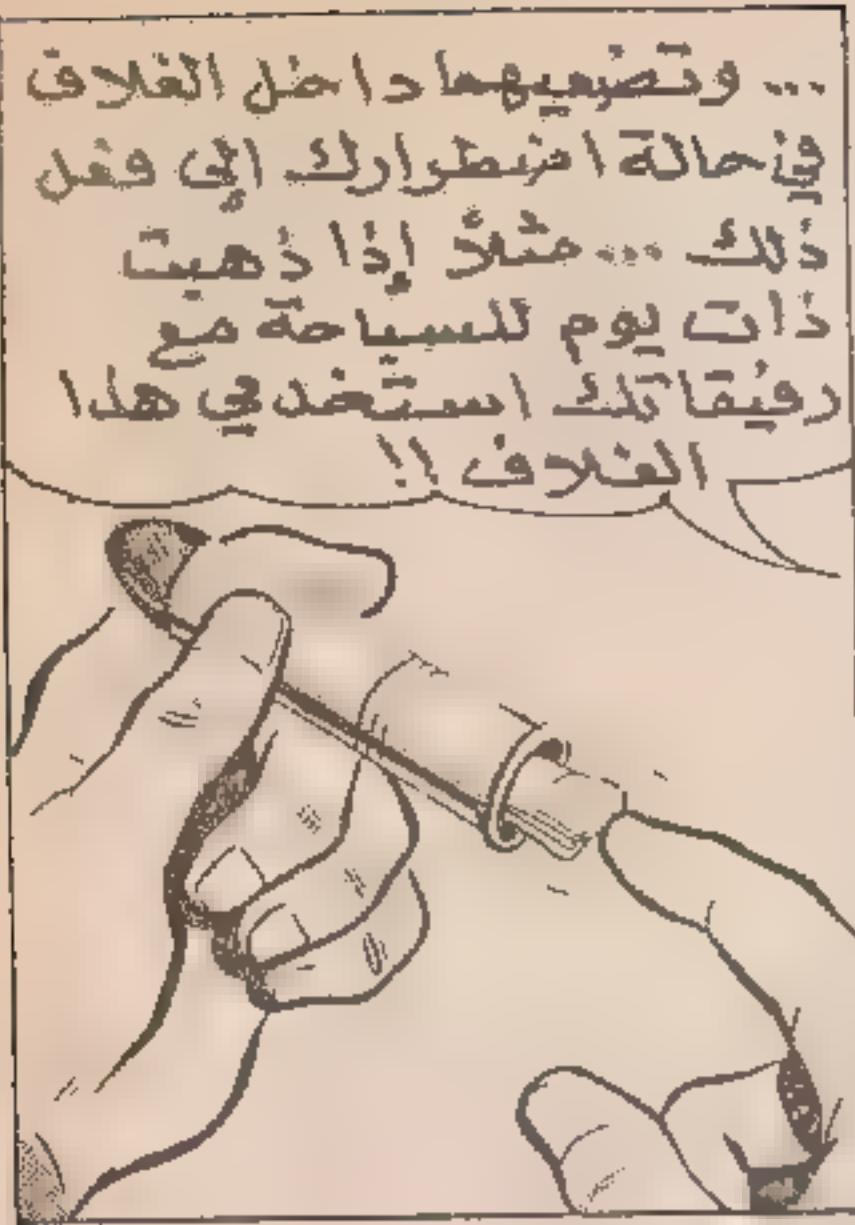 ... وتضعيهما داخل الغلاف
في حالة اضطرارك إلى فعل
ذلك ... مثلاً إذا ذهبت
ذات يوم للسياحة مع
رفيقاتك استخدمي هذا
الغلاف !!